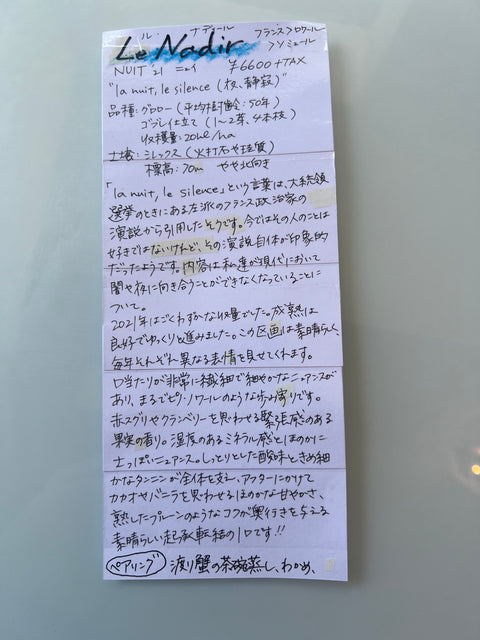 ル ナディール
Le Nadir フランス>ロワール
>ソミュール
NUIT '21 ニュイ ¥6600+TAX
"la nuit, le silence (夜、静寂)"
品種:グロロー(平均樹齢:50年)
ゴブレ仕立て(1~2芽、4本枝)
収穫量:20hl/ha
土壌:シレックス(火打石や珪質)
標高:70m やや北向き
「la nuit, le silence」という言葉は、大統領
選挙のときにある左派のフランス政治家の
演説から引用したそうです。今ではその人のことは
好きではないけれど、その演説自体が印象的
だったようです。内容は私達が現代において
闇や夜に向き合うことができなくなっていることに
ついて。
2021年はごくわずかな収量でした。成熟は
良好でゆっくりと進みました。この区画は素晴らしく、
毎年それぞれ異なる表情を見せてくれます。
口当たりが非常に繊細で細やかなニュアンスが
あり、まるでピノ・ノワールのような歩み寄りです。
赤スグリやクランベリーを思わせる緊張感のある
果実の香り。湿度のあるミネラル感とほのかに
土っぽいニュアンス。しっとりとした酸味ときめ細
かなタンニンが全体を支え、アフターにかけて
カカオやバニラを思わせるほのかな甘やかさ、
熟したプルーンのようなコクが奥行きを与える
素晴らしい起承転結の1本です!!
ペアリング 渡り蟹の茶碗蒸し、わかめ、